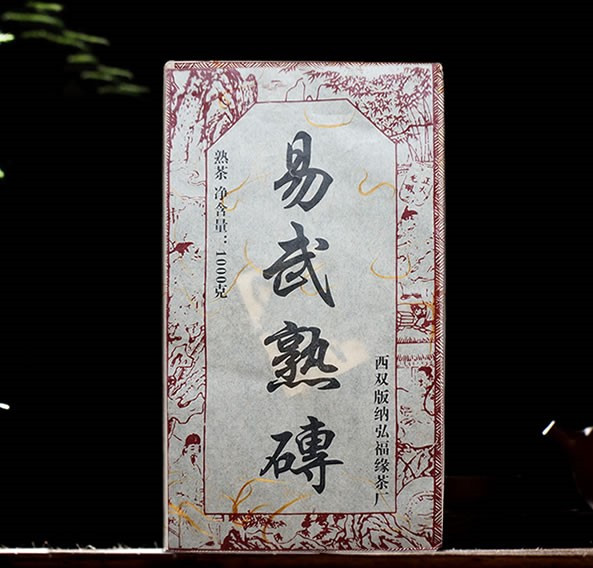 易武熟磚
熟茶 净含量：1000克
西双版纳弘福缘茶厂